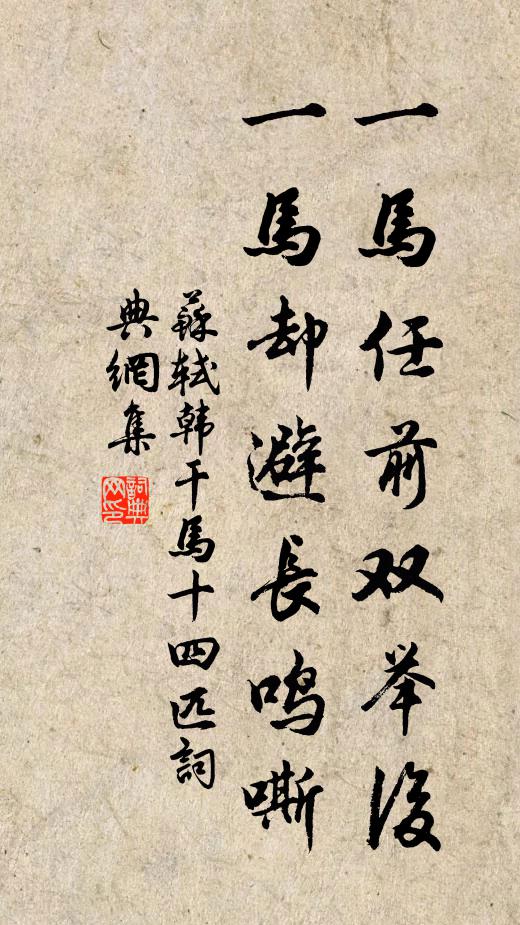 一馬任前双举後
一馬却避長鸣嘶
蘇轼韩干馬十四匹詞
典網集
詞典网印